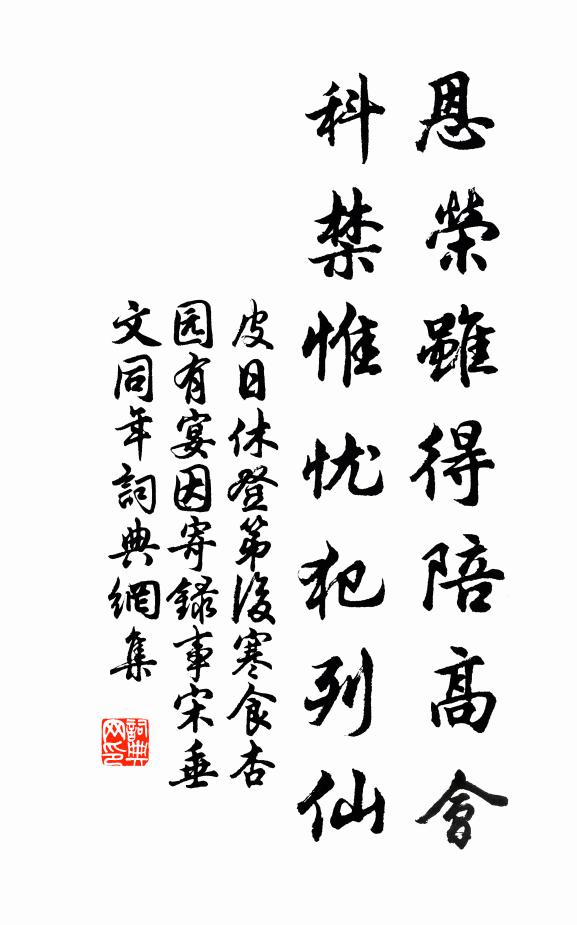 恩榮雖得陪高會
科禁惟忧犯列仙
皮日休登第後寒食杏
园有宴因寄錄事宋垂
文同年詞典網集
詞典网印